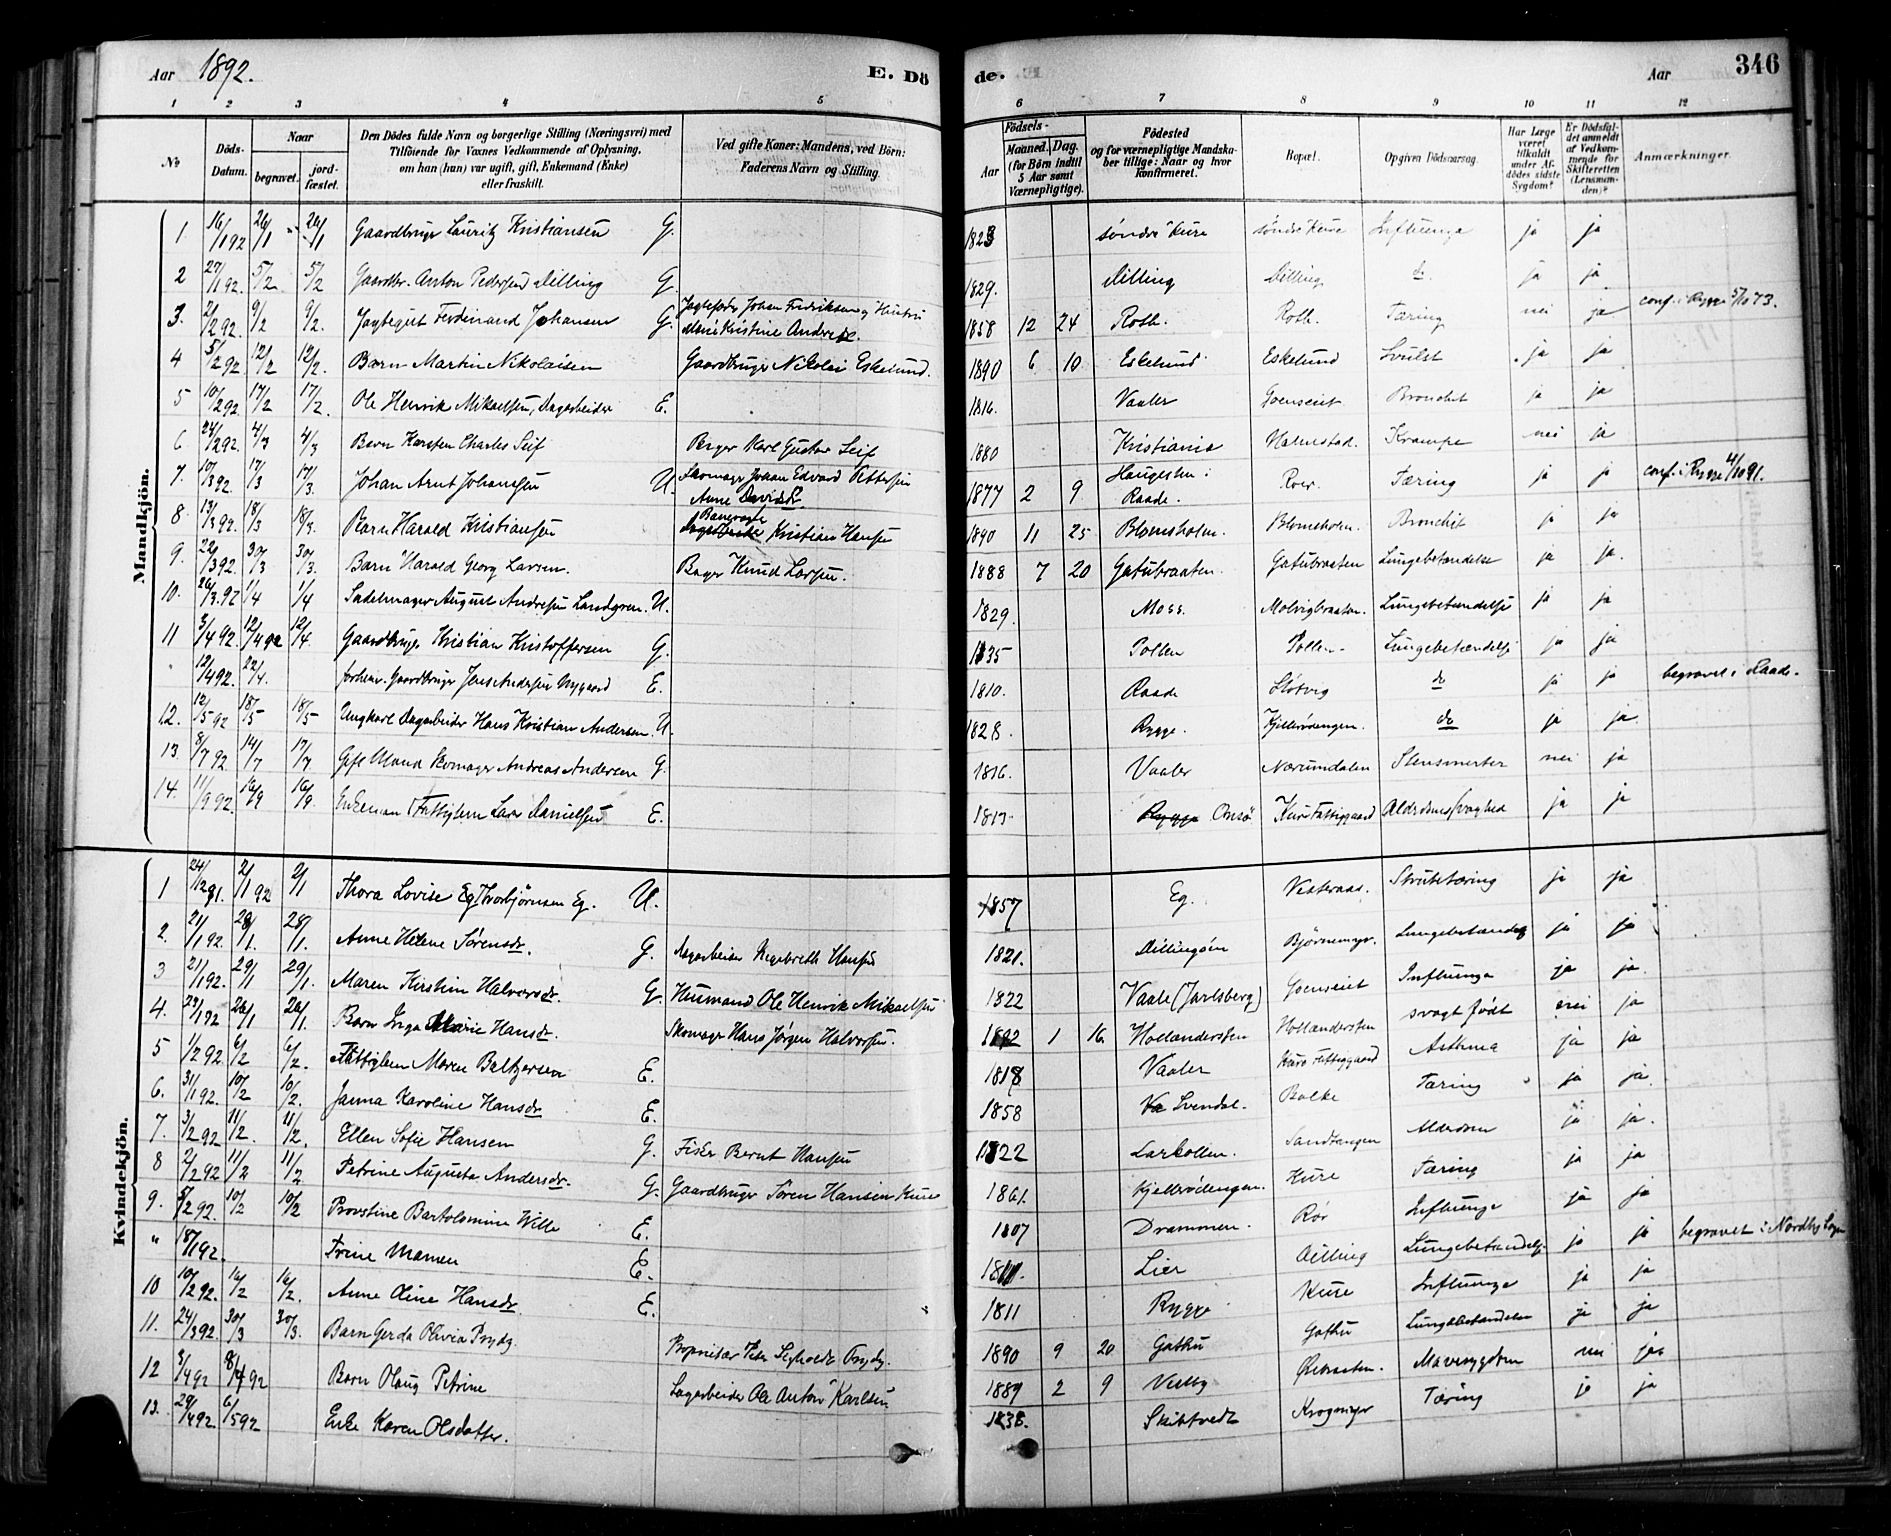 Aar 1892. E. Dö de. Aar 346
1 2 3 4 5 6 7 8 9 10 11 12
No
Döds-Datum.
Naar
begravet.
jordfæstet.
Den Dödes fulde Navn og borgerlige Stilling (Næringsvei) med
Tilföiende for Voxnes Vedkommende af Oplysning,
om han (hun) var ugift, gift, Enkemand (Enke)
eller fraskilt.
Ved gifte Koner: Mandens, ved Börn:
Faderens Navn og Stilling.
Födsels-
Aar
Maaned. Dag.
(for Börn indtil
5 Aar samt
Værnepligtige).
Födested
og for værnepligtige Mandskaber tillige: Naar og hvor
Konfirmeret.
Bopæl.
Opgiven Dödsaarsag.
Har Læge
været
tilkaldt
under Afdödes sidste
Sygdom?
Er Dödsfaldet anmeldt
af Vedkommende for
Skifteretten
(Lensmanden)?
Anmærkninger.
Mandkjön.
1 16/1 92 26/1 26/1 Gaardbruger Lauritz Kristiansen G. 1823 søndre Kure søndre Kure Influenza ja ja
2 27/1 92. 5/2 5/2 Gaardbr. Anton Pedersen Dilling G. 1829. Dilling Dilling do. ja ja
3. 2/2 92. 9/2 9/2. Ferdinand Johansen G. Johan Fredriksen og Hustru Kristine 1858 12 24 Roth. Roth. Tæring nei ja conf. i Rygge 5/10 73.
4 5/2 92 12/2 12/2. Barn Martin Nikolaisen Gaardbruger Nikolai Eskelund. 1890 6 10 Eskelund Eskelund Svulst ja ja
5 10/2 92. 17/2 17/2. Ole Henrik Mikaelsen, Dagarbeider E. 1816. Vaaler Goenseiet Bronchit ja ja
6 24/2 92. 4/3 4/3 Barn Karsten Charles Seif Karl Gustav Seif 1880 Kristiania Halmstad. Krampe nei ja
7. 10/3 92. 17/3 17/3. Johan Arnt Johansen U. Skomager Johan Edvard Pettersen Anne Davidsdr. 1877 2 9 Haugesten i Raade. Roer. Tæring ja ja conf. i Rygge 4/10 91.
8. 13/3 92. 18/3 18/3. Barn Harald Kristiansen Kristian Hansen 1890 11 25 Blomsholm. Blomsholm. Bronchit ja ja
9. 22/3 92. 30/3 30/3. Barn Harald Georg Larsen. Bager Knud Larsen. 1888 7 20 Gatubraaten. Gatubraaten Lungebetændelse ja ja.
10. 26/3.92 1/4 1/4 Sadelmager August Andresen Landgren. U. 1829. Moss. Molvigbraaten. Lungebetændelse ja ja
11 3/4 92. 12/4 92 12/4. Gaardbruger Kristian Kristoffersen G. 1835 Pollen Pollen Lungebetændelse ja ja
" 12/4 92. 22/4. forhenv. Gaardbruger Jens Andersen Nygaard E. 1810. Raade Slotvig do ja ja begravet i Raade.
12. 12/5 92 18/5 18/5 Ungkarl Dagarbeider Hans Kristian Andersen. U. 1828. Rygge. Kjellerödengen. do ja ja
13. 8/7 92. 14/7 17/7 Gift Mand Skomager Andreas Andersen G. 1816. Vaaler Nærumdalen Stensmerter nei ja
14. 11/9 92. 16/9 16/9. Enkeman Fattiglem Lars Danielsen E. 1813. Rygge Onsö Kure Fattiggaard Alderdomssvaghed ja ja
Kvindekjön.
1 24/12 91. 2/1 92 2/1 Thora Lovise Eg Thorbjørnsen Eg. U. 1857 Eg. Vesteraas. Strubetæring ja ja
2. 21/1 92. 28/1. 28/1. Anne Helene Sørensdr. G. Dagarbeider Engebreth Hansen 1821. Dillingöen Bjørnemyr. Lungebetændelse ja ja
3 21/1 92. 29/1 29/1. Maren Kirstine Halvorsdr. G. Husmand Ole Henrik Mikaelsen 1822 Vaale (Jarlsberg) Goenseiet Influenza ja ja.
4. 27/1 92 26/1 26/1. Barn Inga Marie Hansdr. Skomager Hans Jørgen Halvorsen. 1892 1 16. Hollendersten Hollendersten svagt født nei ja
5 1/2 92. 6/2 6/2. Fattiglem Maren Baltzersen E. 1818 Vaaler Kure Fattiggaard Asthma ja ja
6. 31/1 92. 10/2 10/2. Janna Karoline Hansdr E. 1858 Va Svendal. Bolke Tæring ja ja.
7. 3/2 92 11/2. 11/2. Ellen Sofie Hansen G. Fisker Bernt Hansen 1822 Larkollen. Sandtangen Alderdom ja ja.
8 2/2 92 11/2 11/2 Petrine Augusta Andersdr. G. Gaardbruger Søren Hansen Kure 1861. Kjellerödengen. Kure Tæring ja ja
9. 5/2 92. 10/2 10/2 Provstine Bartolomine Wille E. 1807 Drammen. Rör Influenza ja ja
" 18/1 92. Trine Mamen E. Lier Dilling Lungebetændelse ja ja begravet i Nordby Sogn
10 10/2 92. 16/2 16/2. Anne Oline Hansdr E. 1811 Rygge Kure Influenza ja ja
11. 24/3 92 30/3 30/3. Barn Gerda Olivia Prydz. Proprietær Prydz. 1890 9 20 Gathu Gathu Lungebetændelse ja ja
12 3/4 92 8/4 92 Barn Olaug Petrine Dagarbeider Ole Anton Karlsen 1889 2 9 Vestby Mavesygdom nei jaa
13. 29/4 92 6/5 92 Enke Karen Olsdatter. 1838. Skibtvedt Krogmyr Tæring ja ja